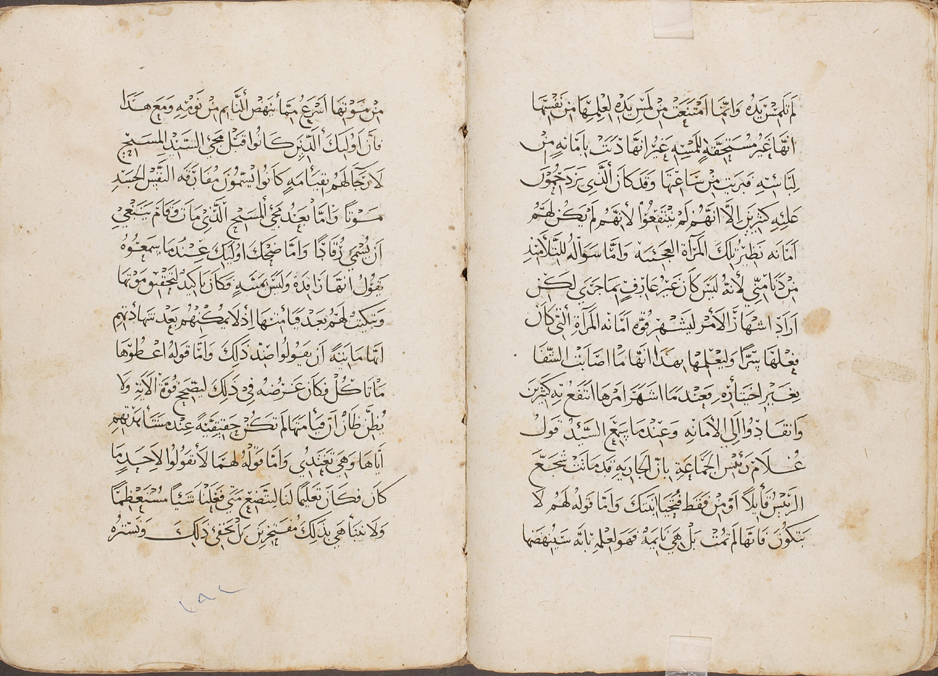 لم تلمس يده وانما امتنعت من لمس يده لعلمها من نفسها
انها غير مستحقه للمسه غير انها دنت بامانه من
لباسه فبريت من ساعتها وقد كان الذين يزدحمون
عليه كثيرين الا انهم لم ينتفعوا لانهم لم يكن لهم
امانه نظير تلك المراة العجيبه واما سواله للتلاميذ
من دنا مني لانه ليس كان غير عارف بما جرى لكن
اراد اشهار الامر ليشهر قوه امانه المراة التي كان
فعلها سرا وليعلمها بهذا انها ما اصابت الشفا
بغير اختياره وعندما اشهر امرها انتفع به كثيرين
وانقادوا الى الامانه وعندما سمع السيد قول
غلام رئيس الجماعة بان الجاريه قد ماتت شجع
الرئيس قايلا اومن فقط فتحيا ابنتك واما قوله لهم لا
تبكون فانها لم تمت بل هي نايمة فهو لعلمه بانه سينهضها
من موتها اسرع مما ينهض النايم من نومه ومع هذا
فان اوليك الذين كانوا قبل مجي السيد المسيح
لا رجا لهم بقيامه كانوا يسمون مفارقه النفس الجسد
موتا واما بعد مجي المسيح الذي مات وقام ينبغي
ان يسمى رقادا واما ضحك اوليك عندما سمعوه
يقول انها راقدة وليس ميته فكان تاكيد لتحقيق موتها
وتبكيت لهم بعد قيامتها اذ لا يمكنهم بعد شهادتهم
انها مايته ان يقولوا ضد ذلك واما قوله اعطوها
ما تاكل فكان غرضه في ذلك لتصحح قوة الاية ولا
يظن ظان ان قيامتها لم تكن حقيقية عند مشاهدتهم
اياها وهي تغتدي واما قوله لهما لا تقولوا لاحد ما
كان فكان تعليما لنا لنتضع متى فعلنا شيا مستعظما
ولا نتباهي بذلك مفتخرين بل نخفي ذلك ونستره
١٨٢